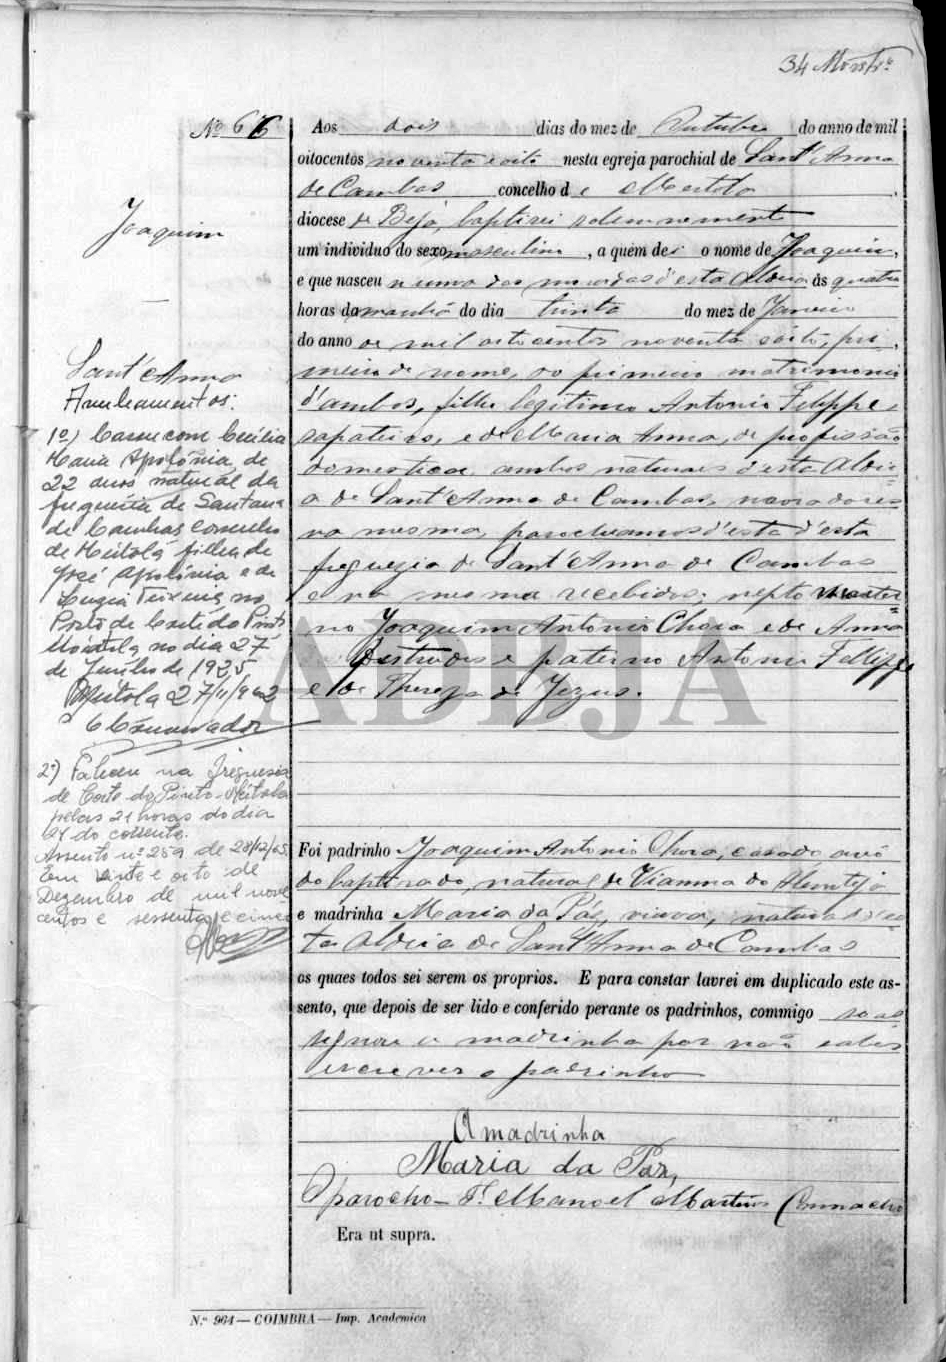 34
Nº 66
Joaquim
Sant'Anna
Averbamentos:
1º) Casou com Cecilia
Maria Apolónia, de
22 anos natural da
freguesia de Santana
de Cambas concelho
de Mertola filha de
José Apolónia e de
Luzia Teixeira no
Posto de Corte do Pinto
Mértola no dia 27
de Junho de 1925
Mertola 27/11/962
O Conservador
2º) Faleceu na freguesia
de Corte do Pinto-Mértola
pelas 21 horas do dia
24 do corrente.
Assento nº 259 de 28/12/65
Em vinte e oito de
Dezembro de mil nove
centos e sessenta e cinco
Aos dois dias do mez de Outubro do anno de mil
oitocentos noventa e oito nesta egreja parochial de Sant'Anna
de Cambas concelho de Mertola,
diocese de Beja, baptisei solemnemente
um individuo do sexo masculino, a quem dei o nome de Joaquim,
e que nasceu n'uma das moradas d'esta Aldeia ás quatro
horas da manhã do dia trinta do mez de Janeiro
do anno de mil oitocentos noventa e oito, pri-
meiro de nome, do primeiro matrimonio
d'ambos, filho legitimo Antonio Felippe,
sapateiro, e de Maria Anna, de profissão
domestica, ambos naturaes d'esta Aldei-
a de Sant'Anna de Cambas, moradores
na mesma, parochianos d'esta d'esta
freguezia de Sant'Anna de Cambas
e na mesma recebidos; nepto mater-
no Joaquim Antonio Chora e de Anna
e paterno Antonio Felippe
e de Thereza de Jezus.
ADEJA
Foi padrinho Joaquim Antonio Chora, casado, avô
do baptisado, natural de Vianna do Alentejo
e madrinha Maria da Páz, viuva, natural d'es-
ta Aldeia de Sant'Anna de Cambas
os quaes todos sei serem os proprios. E para constar lavrei em duplicado este as-
sento, que depois de ser lido e conferido perante os padrinhos, commigo só as
segnou a madrinha por não saber
escrever o padrinho
A madrinha
Maria da Paz,
O parocho- Pe. Manoel Martins Camacho
Era ut supra.
N.º 964 — COIMBRA — Imp. Academica